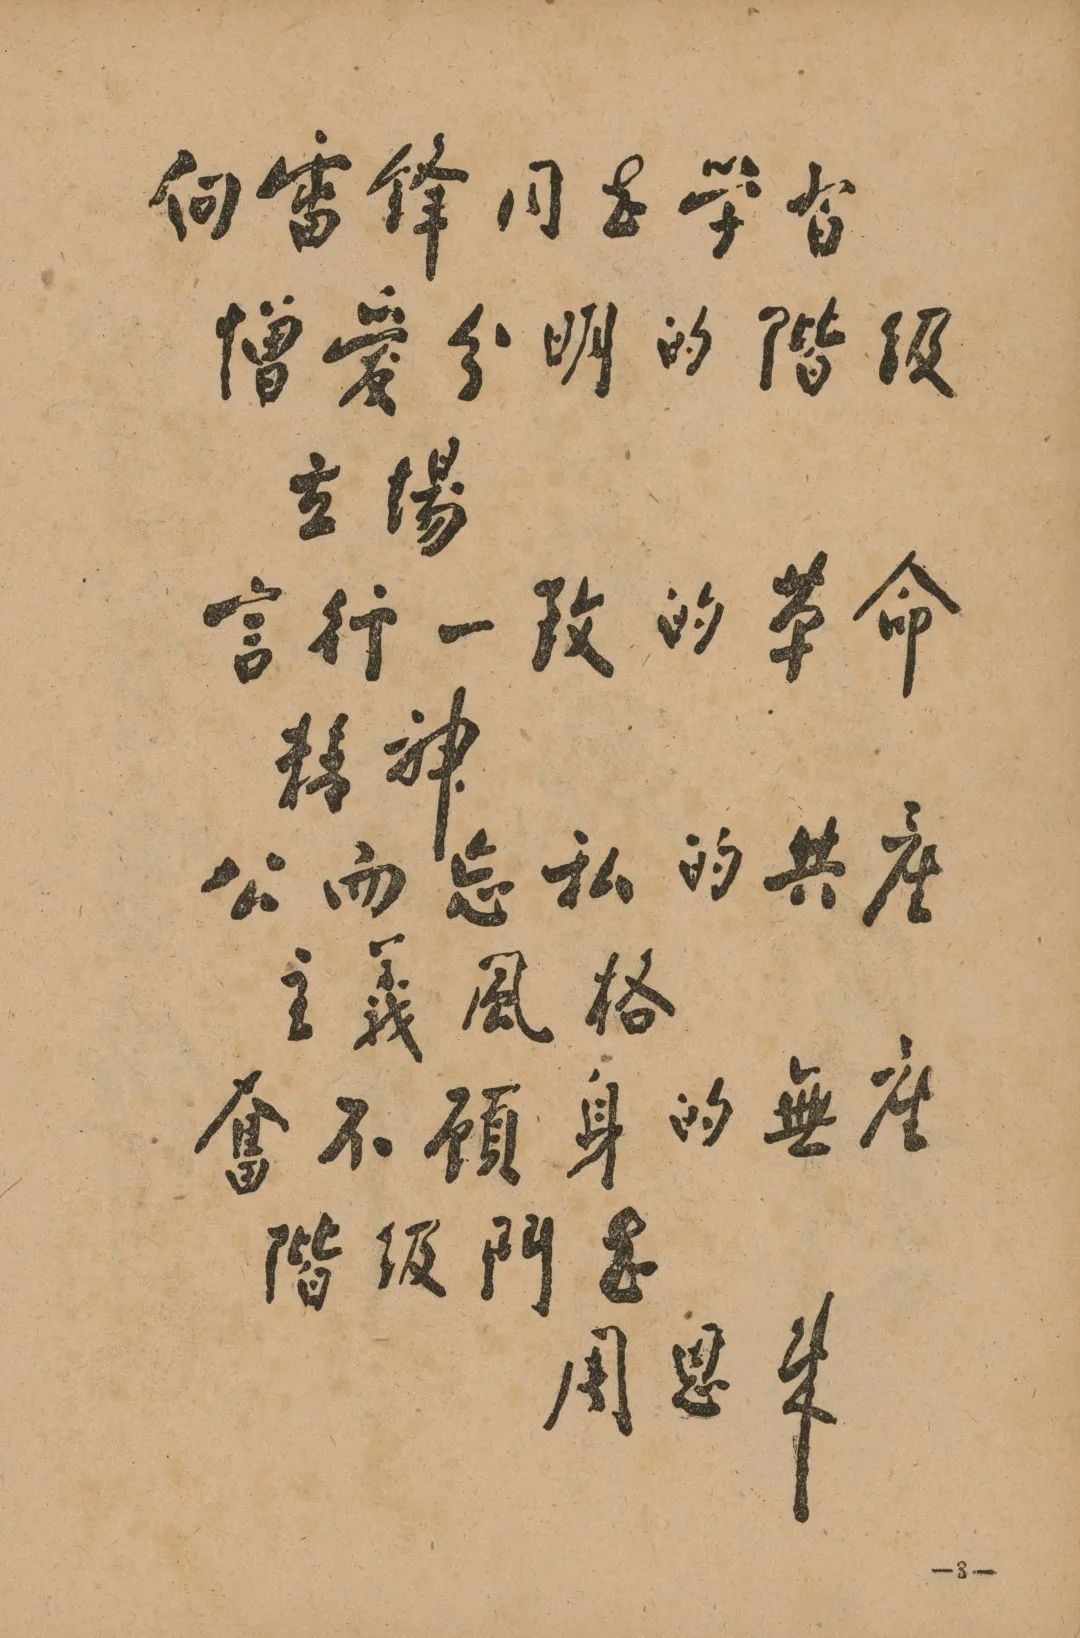 向雷锋同志学習
憎爱分明的階级
立場
言行一致的革命
精神
公而忘私的共産
主義風格
奮不顧身的無産
階级鬥志
周恩来
—3—